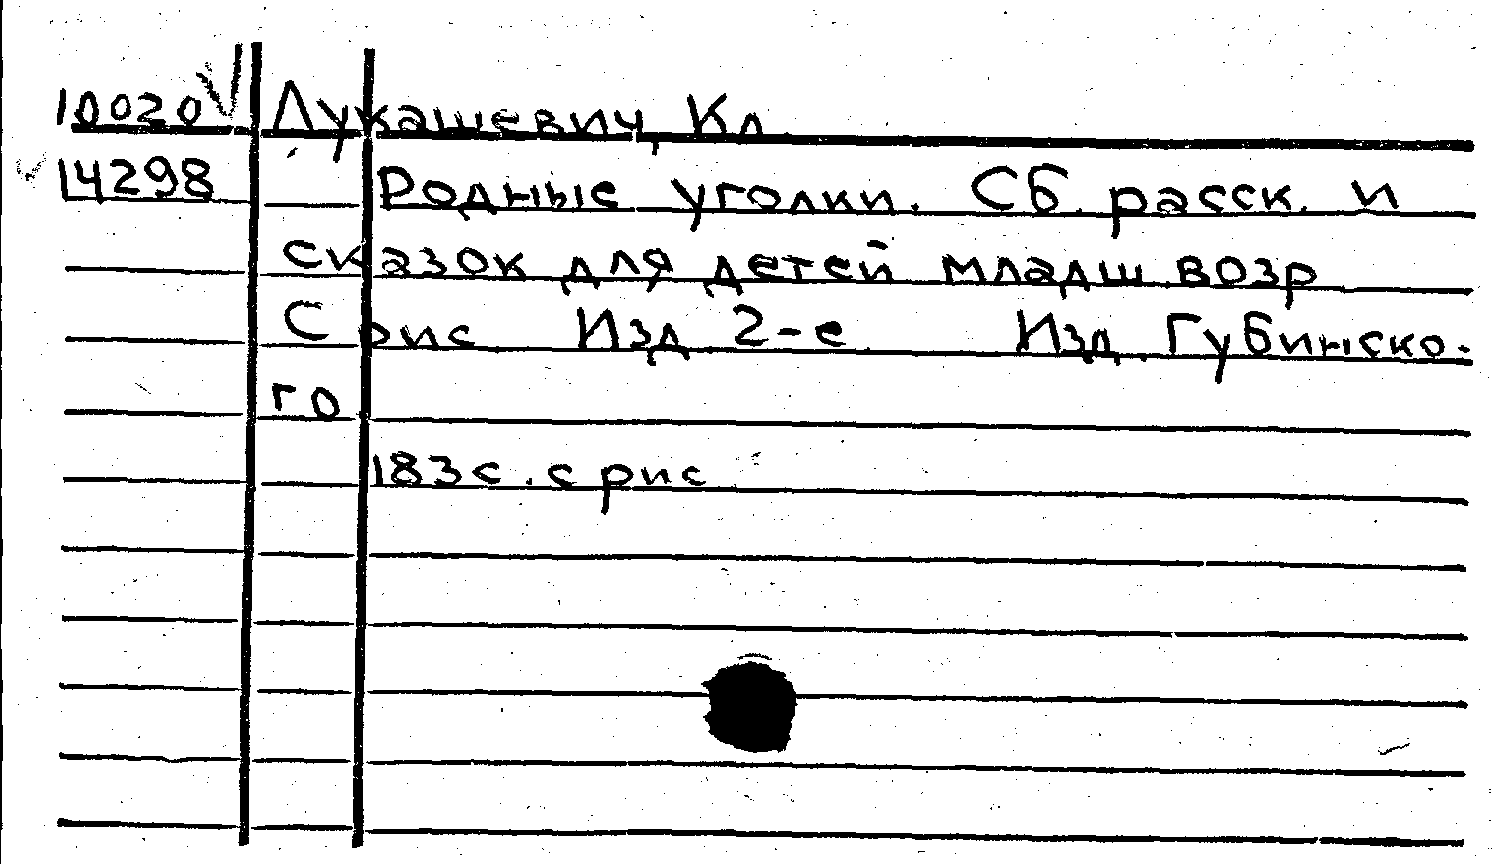 10020 Лукашевич, Кл.
14298 Родные уголки. Сб. расск. и
сказок для детей младш. возр
С рис Изд. 2-е Изд. Губинско-
го
183с. с рис